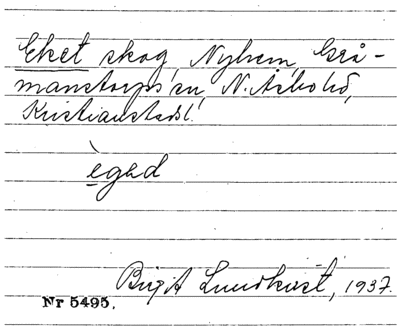 Eket skog, Nyhem, Grå-
manstorps sn, N. Åsbo hd,
Kristianstads l.
èged
Birgit Lundkvist, 1937.
Nr 5495.